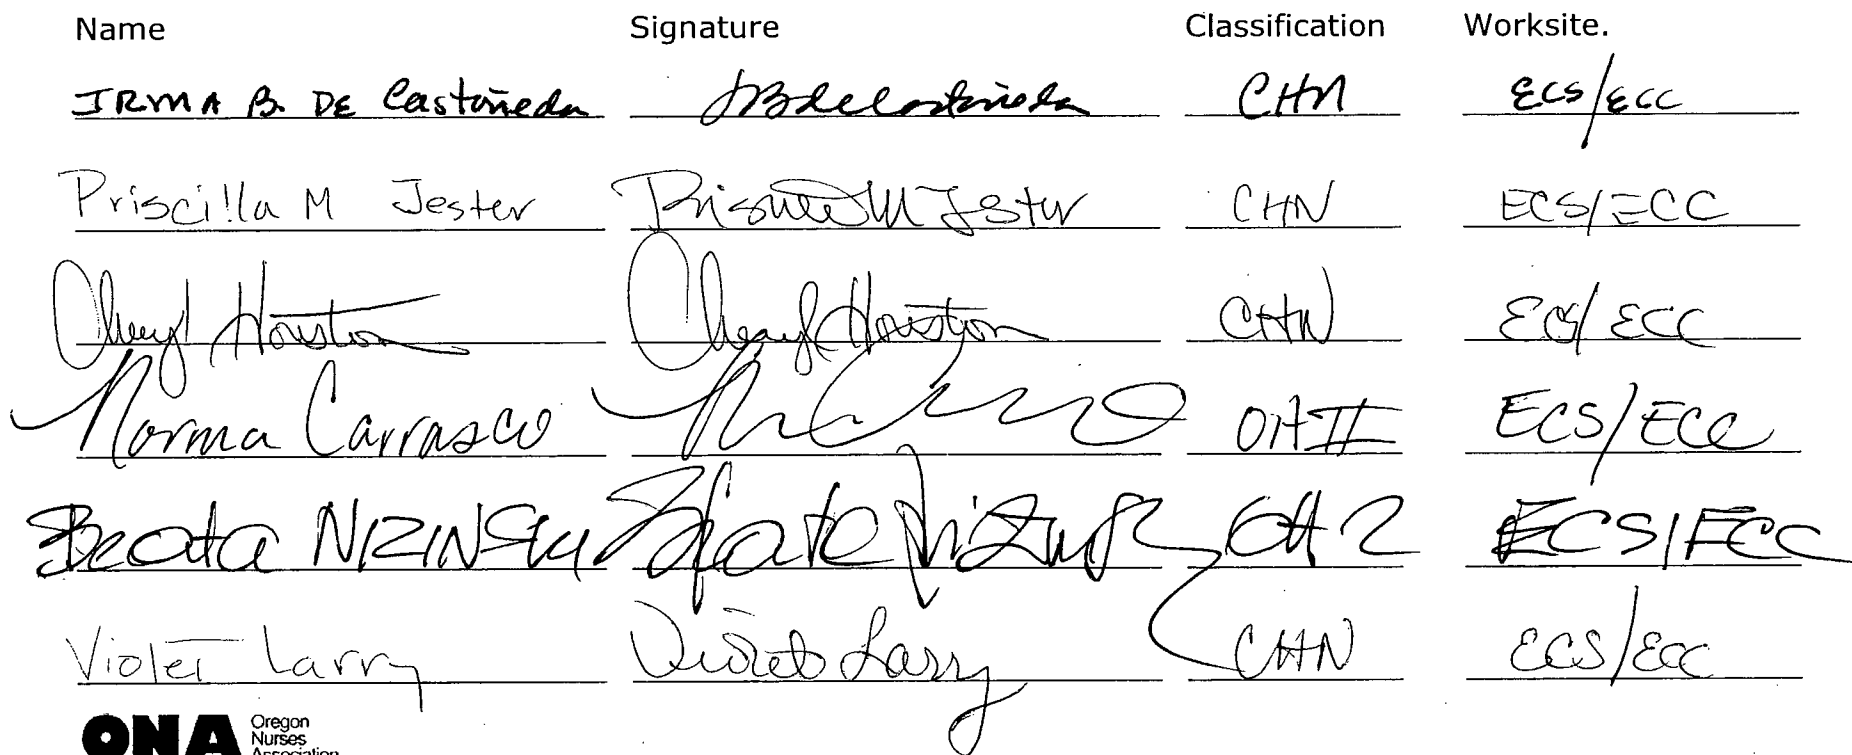 Name Signature Classification Worksite.
IRMA B. DE Castañeda JBdeCastañeda CHN ECS/ECC
Priscilla M Jester Priscilla M Jester CHN ECS/ECC
Cheryl Houston Cheryl Houston CHN ECS/ECC
Norma Carrasco OAII ECS/ECC
Beata NIZINSKI Beata Nizinski OA2 ECS/ECC
Violet Larry Violet Larry CHN ECS/ECC
ONA Oregon
Nurses
Association